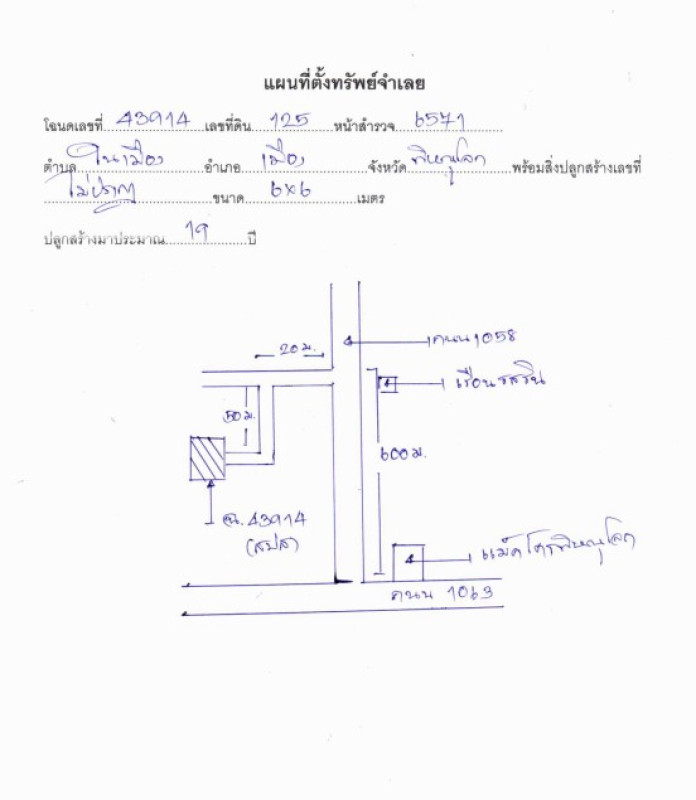 แผนที่ตั้งทรัพย์จำเลย
โฉนดเลขที่ 43914 เลขที่ดิน 125 หน้าสำรวจ 6571
ตำบล ในเมือง อำเภอ เมือง จังหวัด พิษณุโลก พร้อมสิ่งปลูกสร้างเลขที่
ไม่ปรากฏ ขนาด 6x6 เมตร
ปลูกสร้างมาประมาณ 19 ปี
ถนน 1058
20 ม.
เรือนรสริน
50 ม.
600 ม.
ฉ. 43914
(สปส)
แม็คโครพิษณุโลก
ถนน 1063